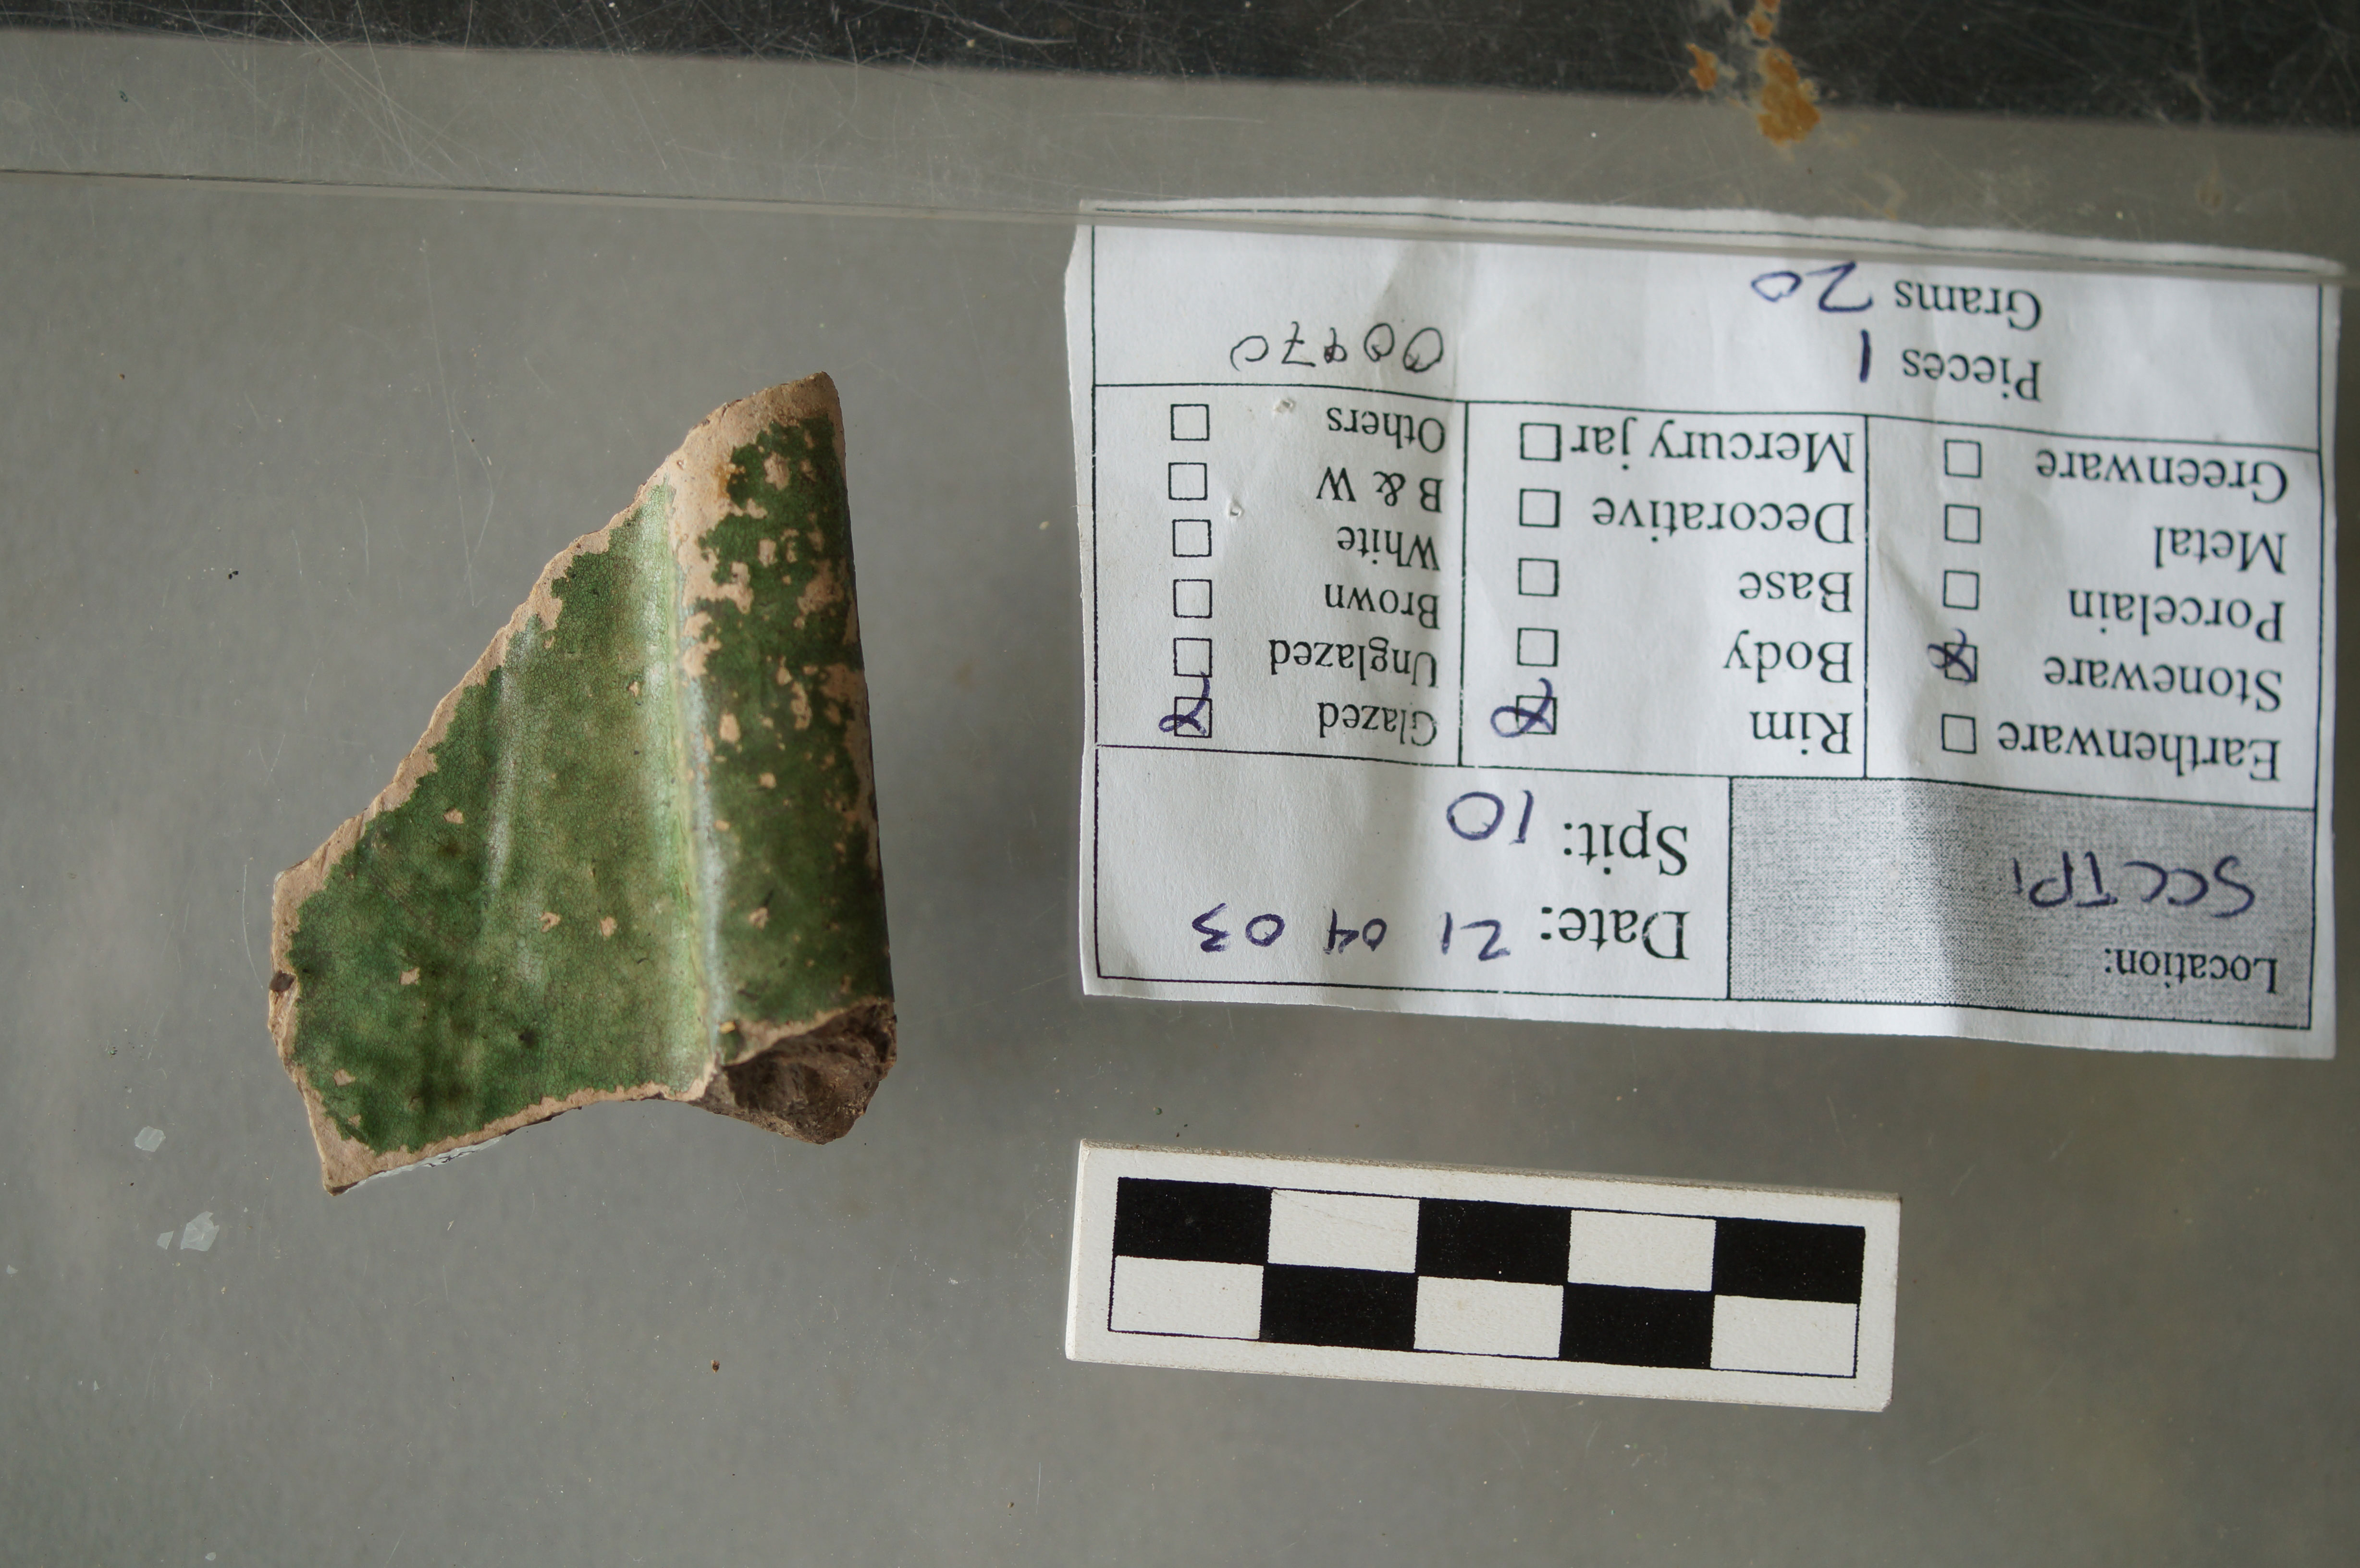 Location:
SCCTP1
Date: 21 04 03
Spit: 10
Earthenware
Stoneware
Porcelain
Metal
Greenware
Rim
Body
Base
Decorative
Mercury jar
Glazed
Unglazed
Brown
White
B & W
Others
Pieces 1
Grams 20